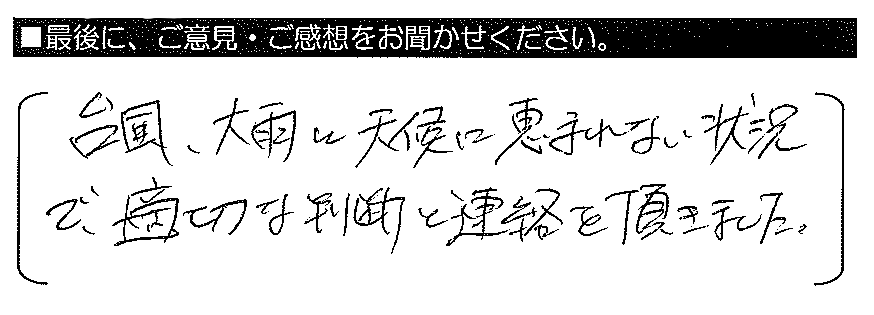 ■最後に、ご意見・ご感想をお聞かせください。
台風、大雨と天候に恵まれない状況
で、適切な判断と連絡を頂きました。